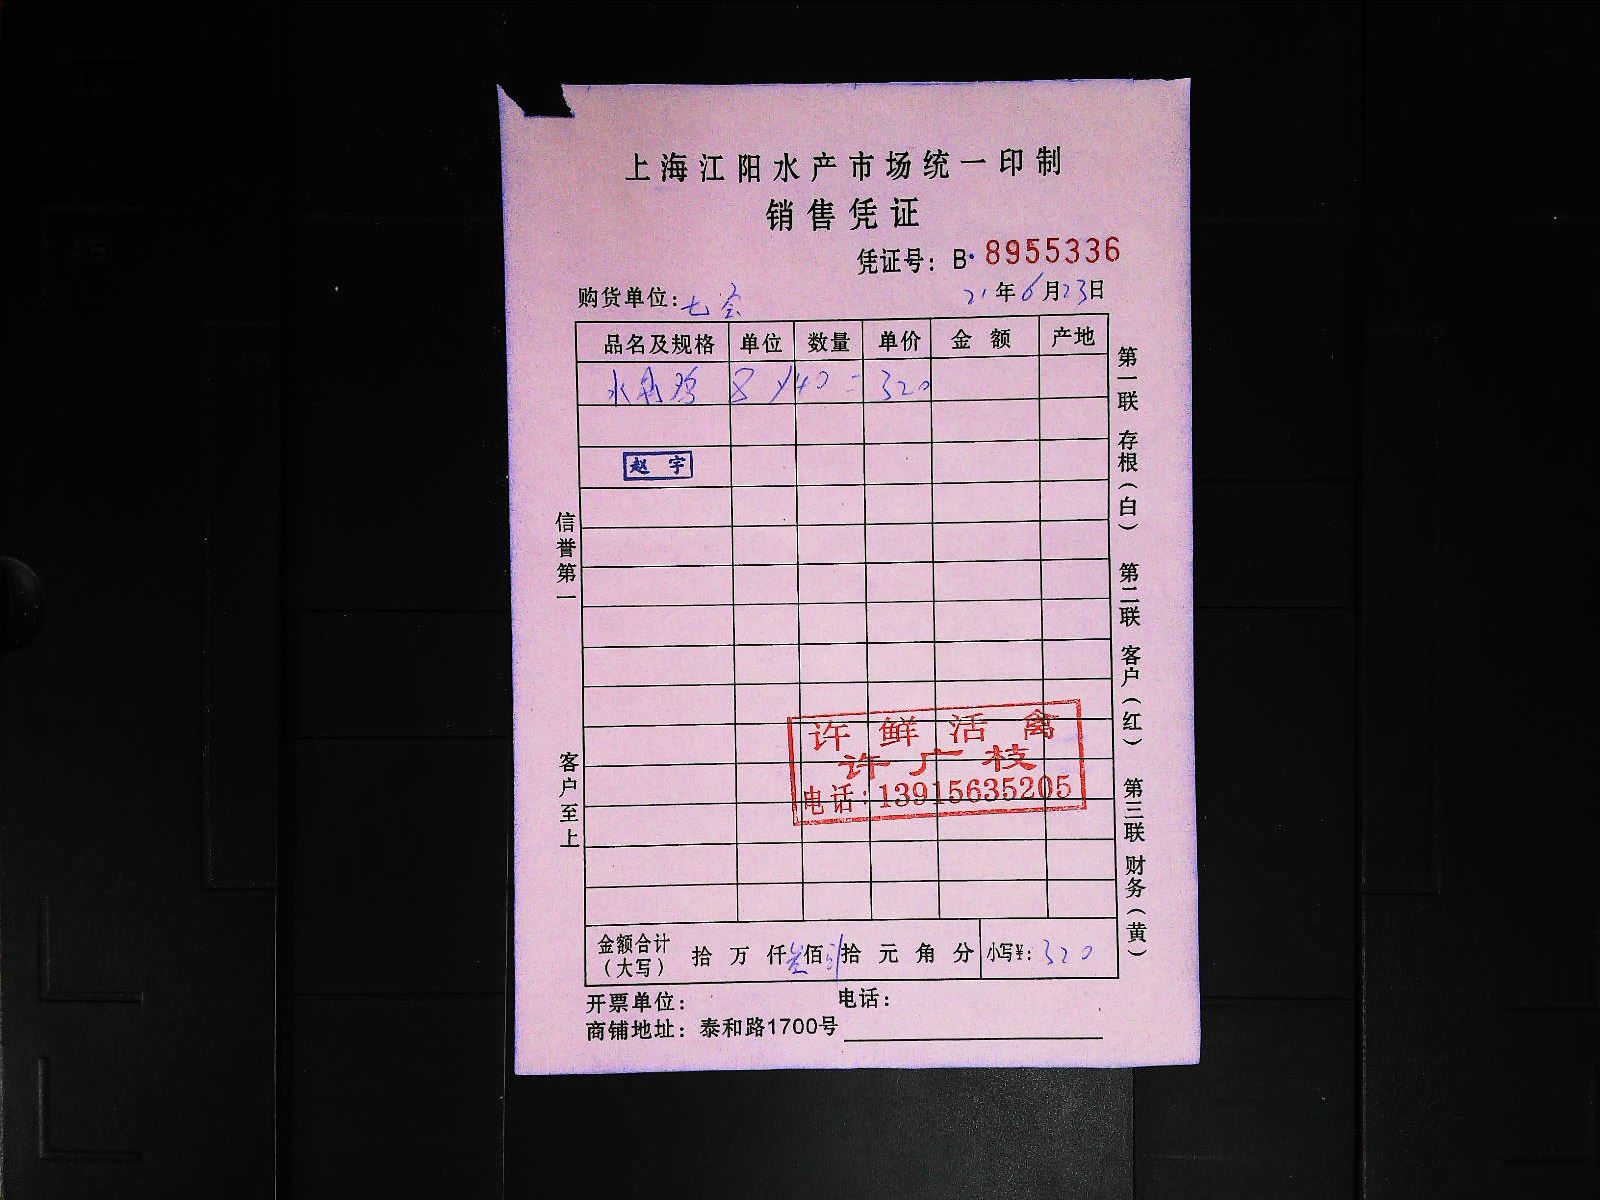 上海江阳水产市场统一印制
销售凭证
凭证号：B· 8955336
购货单位：七 21年6月23日
品名及规格 单位 数量 单价 金额 产地
水 鸡 8 × 40 = 320
赵 宇
信誉第一
客户至上
许 鲜 活 禽
许广枝
电话：13915635205
金额合计（大写） 拾 万 仟 叁佰 拾 元 角 分 小写¥：320
开票单位： 电话：
商铺地址：泰和路1700号
第一联 存根（白） 第二联 客户（红） 第三联 财务（黄）